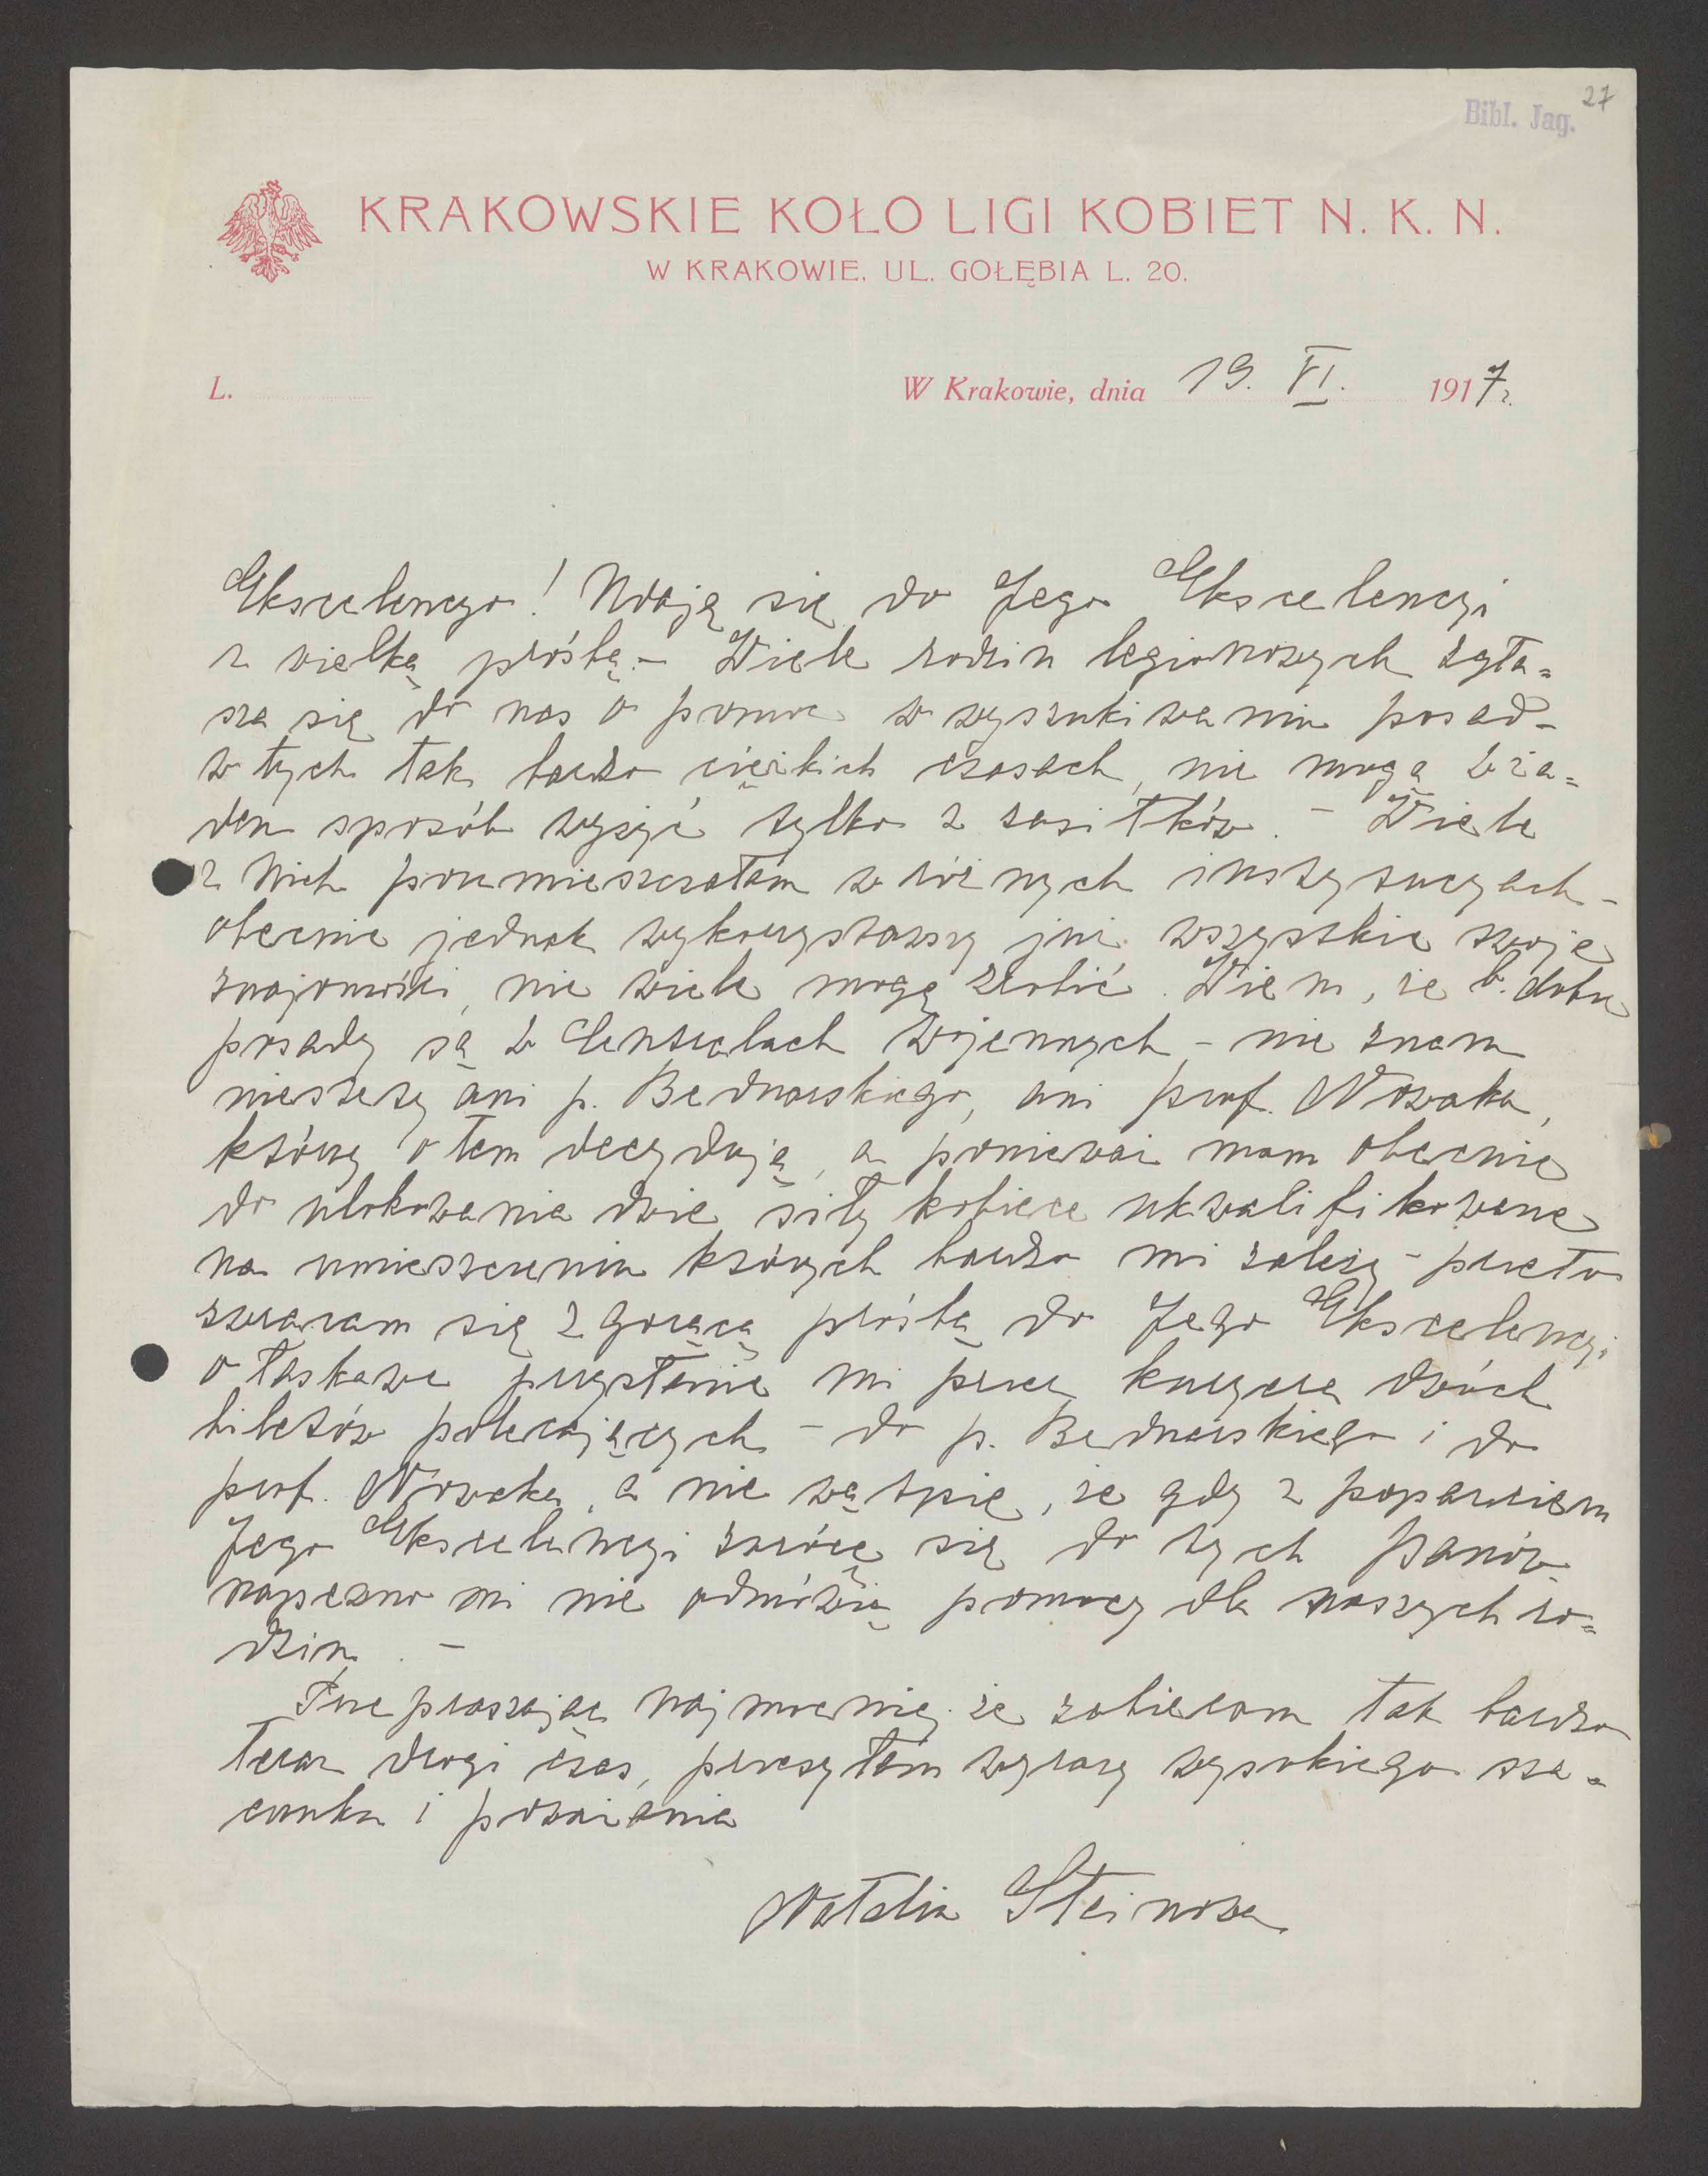 27
Bibl. Jag.
KRAKOWSKIE KOŁO LIGI KOBIET N. K. N.
W KRAKOWIE, UL. GOŁĘBIA L. 20.
L.
W Krakowie, dnia 19. VI. 1917 r.
Ekscelencyo! Udaję się do Jego Ekscelencyi
z wielką prośbą. – Wiele rodzin legionowych zgła=
sza się do nas o pomoc w wyszukiwaniu posad –
w tych tak bardzo ciężkich czasach, nie mogą w ża=
den sposób wyżyć tylko z zasiłków. – Wiele
z nich poumieszczałam w różnych instytucyach –
obecnie jednak wykorzystawszy już wszystkie swoje
znajomości, nie wiele mogę zrobić. Wiem, że b. dobre
posady są w Centralach wojennych – nie znam
niestety ani p. Bednarskiego, ani prof. Nowaka,
którzy o tem decydują, a ponieważ mam obecnie
do ulokowania dwie siły kobiece ukwalifikowane
na umieszczeniu których bardzo mi zależy – przeto
zwracam się z gorącą prośbą do Jego Ekscelencyi
o łaskawe przysłanie mi przez kuryera dwóch
biletów polecających – do p. Bednarskiego i do
prof. Nowaka, a nie wątpię, że gdy z poparciem
Jego Ekscelencyi zwrócę się do tych Panów
napewno mi nie odmówią pomocy dla naszych ro=
dzin. –
Przepraszając najmocniej że zabieram tak bardzo
teraz drogi czas, przesyłam wyrazy wysokiego sza=
cunku i poważania
Natalia Steinowa